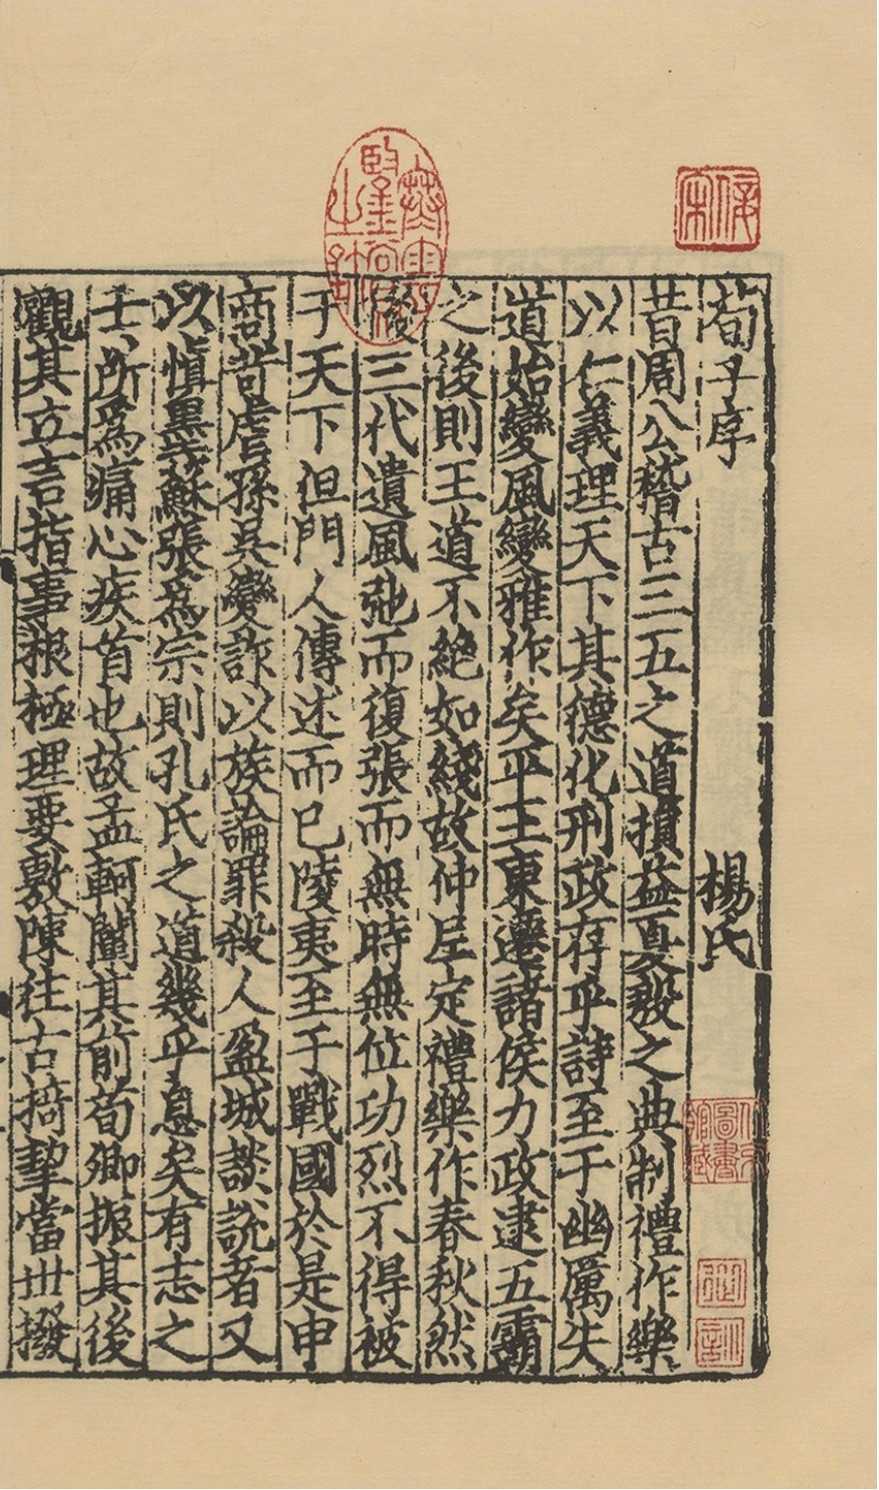 荀子序　楊氏
昔周公稽古三五之道損益夏殷之典制禮作樂
以仁義理天下其德化刑政存乎詩至于幽厲失
道始變風變雅作矣平王東遷諸侯力政逮五霸
之後則王道不絕如綫故仲尼定禮樂作春秋然
後三代遺風弛而復張而無時無位功烈不得被
于天下但門人傳述而已陵夷至于戰國於是申
商苛虐孫吳變詐以族論罪殺人盈城談說者又
以慎墨蘇張爲宗則孔氏之道幾乎息矣有志之
士所爲痛心疾首也故孟軻闡其前荀卿振其後
觀其立言指事根極理要敷陳往古掎挈當世撥